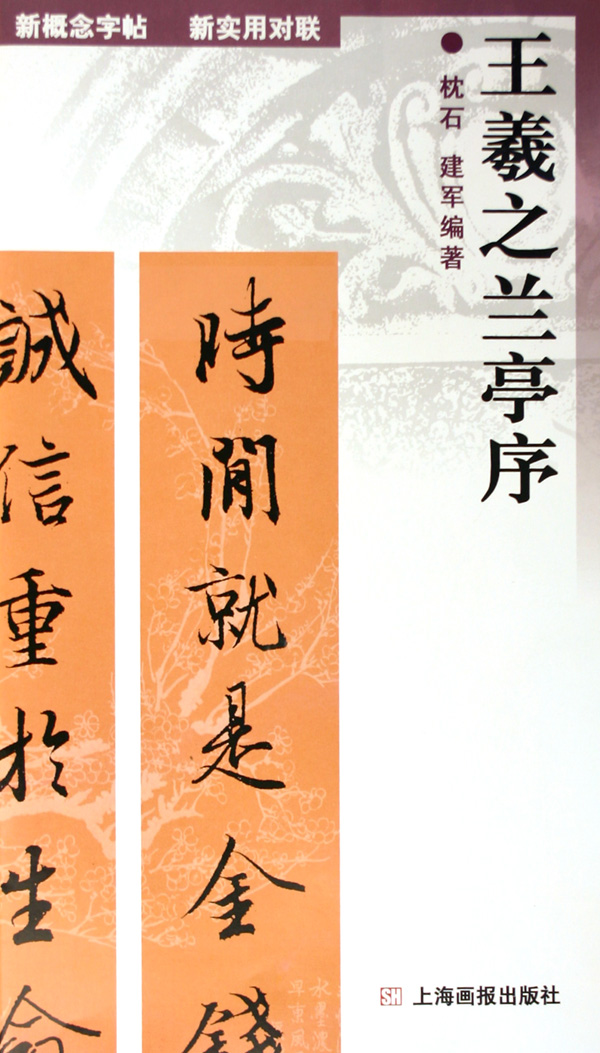 新概念字帖 新实用对联
王羲之兰亭序
枕石 建军编著
時間就是金錢
誠信重於生命
SH 上海画报出版社